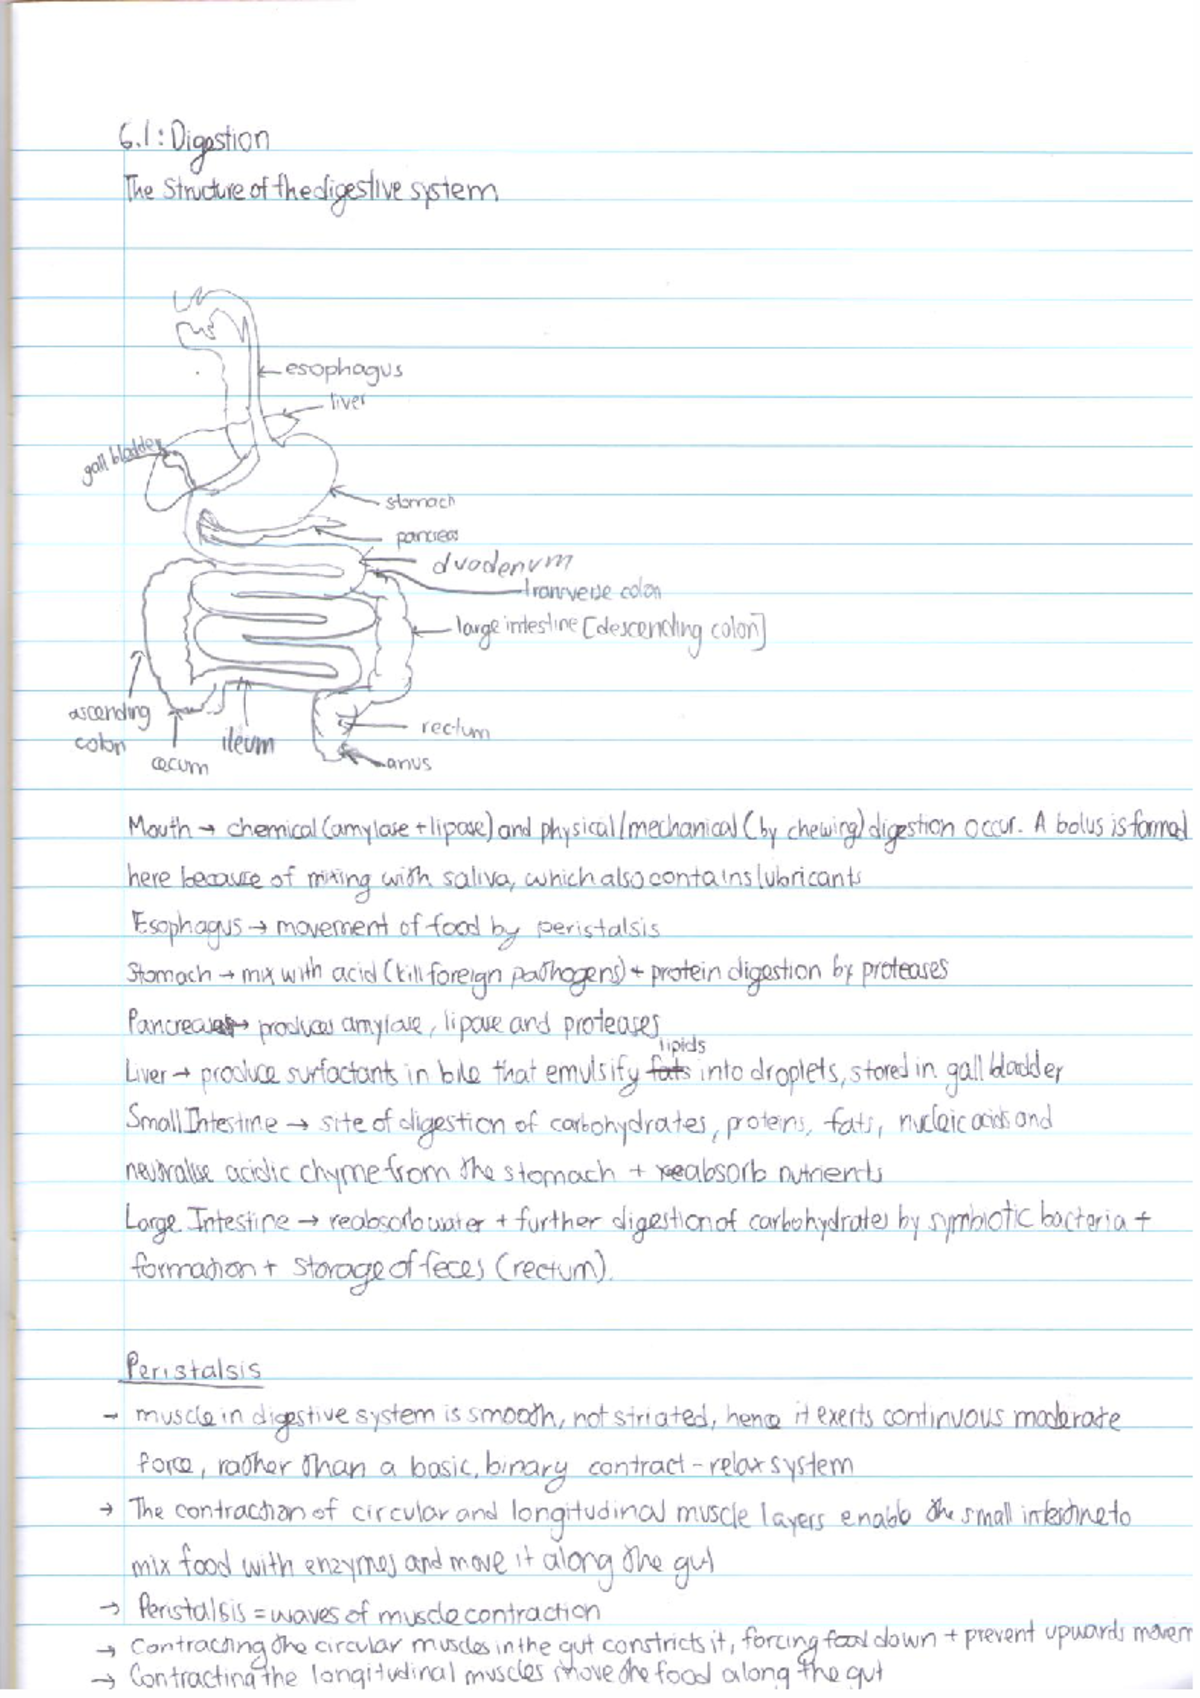 6.1: Digestion
The Structure of the digestive system
esophagus
liver
gall bladder
stomach
pancreas
duodenum
tranverse colon
large intestine [descending colon]
ascending colon
cecum
ileum
rectum
anus
Mouth → chemical (amylase + lipase) and physical/mechanical (by chewing) digestion occur. A bolus is formed
here because of mixing with saliva, which also contains lubricants
Esophagus → movement of food by peristalsis
Stomach → mix with acid (kill foreign pathogens) + protein digestion by proteases
Pancreas → produces amylase, lipase and proteases
Liver → produce surfactants in bile that emulsify fats lipids into droplets, stored in gall bladder
Small Intestine → site of digestion of carbohydrates, proteins, fats, nucleic acids and
neutralise acidic chyme from the stomach + reabsorb nutrients
Large Intestine → reabsorb water + further digestion of carbohydrates by symbiotic bacteria +
formation + storage of feces (rectum).
Peristalsis
→ muscle in digestive system is smooth, not striated, hence it exerts continuous moderate
force, rather than a basic, binary contract-relax system
→ The contraction of circular and longitudinal muscle layers enable the small intestine to
mix food with enzymes and move it along the gut
→ Peristalsis = waves of muscle contraction
→ Contracting the circular muscles in the gut constricts it, forcing food down + prevent upwards movem
→ Contracting the longitudinal muscles move the food along the gut